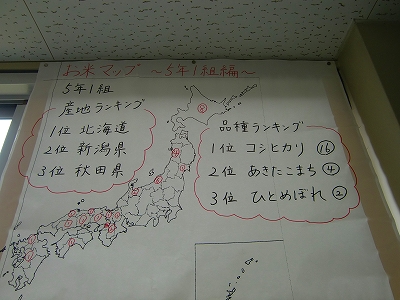 お米マップ ～5年1組編～
5年1組
産地ランキング
1位 北海道
2位 新潟県
3位 秋田県
品種ランキング
1位 コシヒカリ ⑯
2位 あきたこまち ④
3位 ひとめぼれ ②